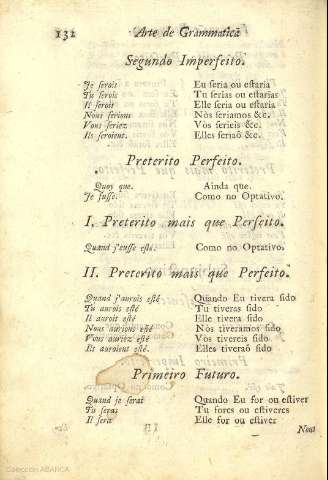 132 Arte de Grammatica
Segundo Imperfeito.
Je serois Eu seria ou estaria
Tu serois Tu serias ou estarias
Il seroit Elle seria ou estaria
Nous serions Nòs seriamos &c.
Vous seriez Vòs serieis &c.
Ils seroient. Elles seriaõ &c.
Preterito Perfeito.
Quoy que. Ainda que.
Je fusse. Como no Optativo.
I. Preterito mais que Perfeito.
Quand j'eusse esté. Como no Optativo.
II. Preterito mais que Perfeito.
Quand j'aurois esté Quando Eu tivera sido
Tu aurois esté Tu tiveras sido
Il auroit esté Elle tivera sido
Nous aurions esté Nòs tiveramos sido
Vous auriez esté Vòs tivereis sido
Ils auroient esté. Elles tiveraõ sido
Primeiro Futuro.
Quand je serai Quando Eu for ou estiver
Tu seras Tu fores ou estiveres
Il sera Elle for ou estiver
Nous
Colección ABANCA